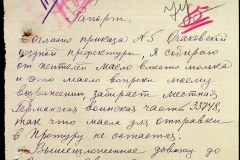 55
Рапорт.
Согласно приказа №5 Очаковской
уездной префектуры, я собираю
от жителей масло вместо молока
и это масло вопреки моему
выражению забирает местная
Германская воинская часть 33748,
так что масла для отправки
в Протуру не остается.
Вышеизложенное довожу до